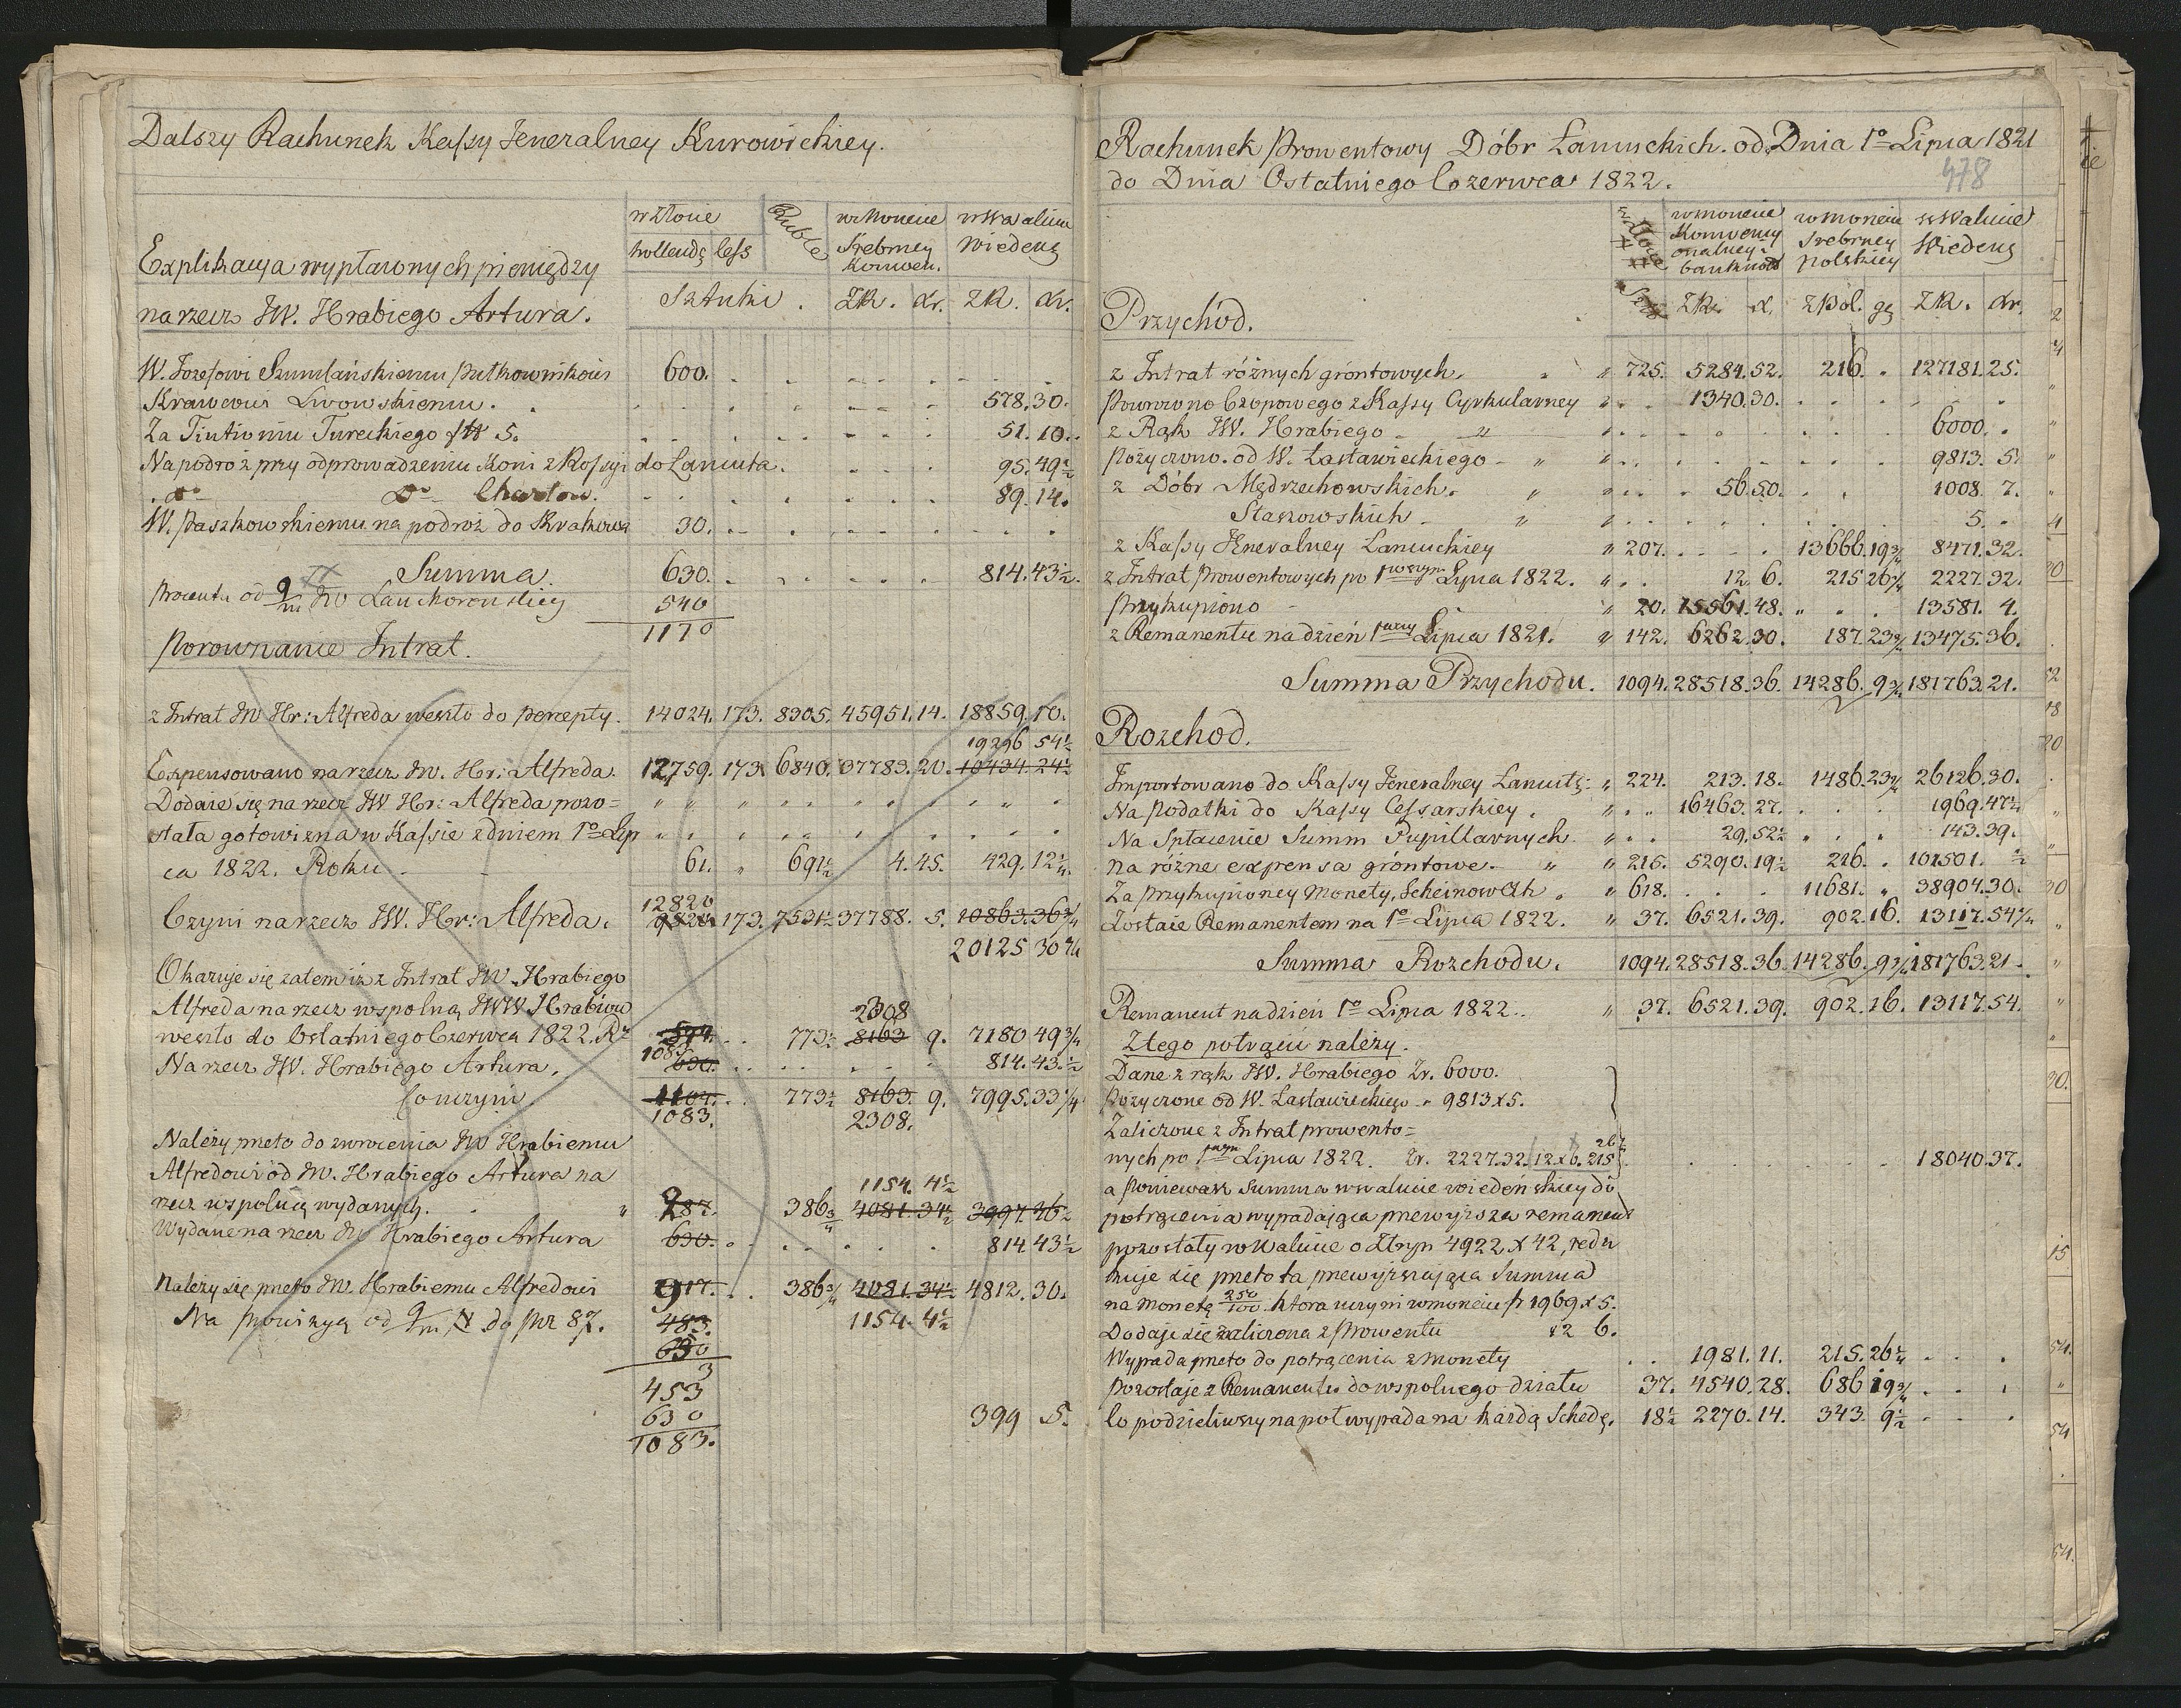 Dalszy Rachunek Kassy Jeneralney Kurowickiey.
w złocie Ruble w monecie w Walucie
hollendę cess Srebrney Wiedenę
Konwen.
Explikacya wypłaconych pieniędzy
na rzecz JW. Hrabiego Artura.
Sztuki. ZR. Xr. ZR. Xr.
W. Jozefowi Szumlańskiemu Pułkownikowi 600.
Krawcowi Lwowskiemu. 578.30.
Za Tiutiuniu Tureckiego 5. 51.10.
Na podróż przy odprowadzeniu Koni z Rossyi do Łańcuta. 95.49½
do do Chartow. 89.14.
W. Paszkowskiemu na podroż do Krakowa 30.
Summa. 630. 814.43½.
Procentu od 9/m JW Lanckoronskiey 540
1170
Porownanie Intrat.
z Intrat JW Hr: Alfreda weszło do percepty. 14024. 173. 8305. 45951.14. 18859.10.
19296 54½
Expensowano na rzecz JW. Hr: Alfreda. 12759. 173. 6840. 37783.20. 10434.24½
Dodaie się na rzecz JW Hr: Alfreda pozo=
stała gotowizna w Kassie z dniem 1o Lip
ca 1822. Roku. 61. 691½ 4.45. 429.12¼.
12820
Czyni na rzecz JW. Hr: Alfreda. 173. 7531½ 37788. 5. 10863.36¾
20125 30¾
Okazuje się zatem iż z Intrat JW. Hrabiego
Alfreda na rzecz wspolną JWW Hrabiów 2308
weszło do Ostatniego Czerwca 1822. Rz 773½ 8163 9. 7180 49¾
1083
Na rzecz JW. Hrabiego Artura. 630. 814.43½
Co uczyni 1104. 773½ 8163. 9. 7995.33¼
1083. 2308.
Należy preto do zwrocenia JW Hrabiemu
Alfredowi od JW. Hrabiego Artura na
1154. 4½
rzecz wspolną wydanych. 287. 386¾ 4081.34½ 3997.46½
Wydane na rzecz JW Hrabiego Artura 630. 814 43½
Należy się preto JW. Hrabiemu Alfredowi 917. 386¾ 4081.34½ 4812.30.
Na prowizyą od 9/m do pr 87. 483. 1154. 4½
630
3
453
630 399 5.
1083.
Rachunek Prowentowy Dóbr Łancuckich. od Dnia 1o Lipca 1821
do Dnia Ostatniego Czerwca 1822.
478
w monecie w monecie w Walucie
Konwency Srebrney Wiedenę
onalney polskiey
banknot
Przychód.
ZR. X. ZPol. gę ZR. Xr.
z Intrat różnych gróntowych. 725. 5284.52. 216. 127181.25.
Powrocono Czopowego z Kassy Cyrkularney 1340.30.
z Rąk JW. Hrabiego 6000.
Pożyczono. od W. Łastawieckiego 9813. 5.
z Dóbr Mędrzechowskich. 56.50. 1008. 7.
Staszowskich. 5.
z Kassy Jeneralney Lancuckiey 207. 13666.19¾ 8471.32.
z Intrat Prowentowych po 1wszym Lipca 1822. 12. 6. 215 26¼ 2227.32.
Przykupiono 20. 15561.48. 13581. 4.
z Remanentu na dzień 1szy Lipca 1821. 142. 6262.30. 187.23¾ 13475.36.
Summa Przychodu. 1094. 28518.36. 14286. 9¾ 181763.21.
Rozchod.
Importowano do Kassy Jeneralney Lancutę: 224. 213.18. 1486.23¾ 26126.30.
Na Podatki do Kassy Cessarskiey. 16463.27. 1969.47¼
Na Spłacenie Summ Pupillarnych. 29.52½ 143.39.
na różne expensa gróntowe. 215. 5290.19½ 216. 101501. ½
Za przykupioney monety, Scheinowch. 618. 11681. 38904.30.
Zostaie Remanentem na 1o Lipca 1822. 37. 6521.39. 902.16. 13117.54¼
Summa Rozchodu. 1094. 28518.36. 14286. 9¾ 181763.21.
Remanent na dzień 1o Lipca 1822. 37. 6521.39. 902.16. 13117.54.
Z tego potrącić należy.
Dane z rąk JW. Hrabiego Zr. 6000.
Pożyczone od W. Łastawieckiego 9813 x 5.
Zaliczone z Intrat prowento=
nych po 1szym Lipca 1822. Zr. 2227.32. 12x6. 215 26¼ 18040.37.
a ponieważ Summa w walucie wiedeńskiey do
potrącenia wypadająca prewyższa remanent
pozostały w Walucie o Ztryn 4922 x 42, redu
kuje się preto ta prewyższająca Summa
na monetę 250/100 ktora uczyni w monecie fr 1969 x 5.
Dodaje się zaliczona z Prowentu 12 6.
Wypada preto do potrącenia z monety 1981. 11. 215.26¼
Pozostaje z Remanentu do wspolnego działu 37. 4540.28. 686 19¾
Co podzieliwszy na poł wypada na każdą Schedę. 18½ 2270.14. 343. 9½